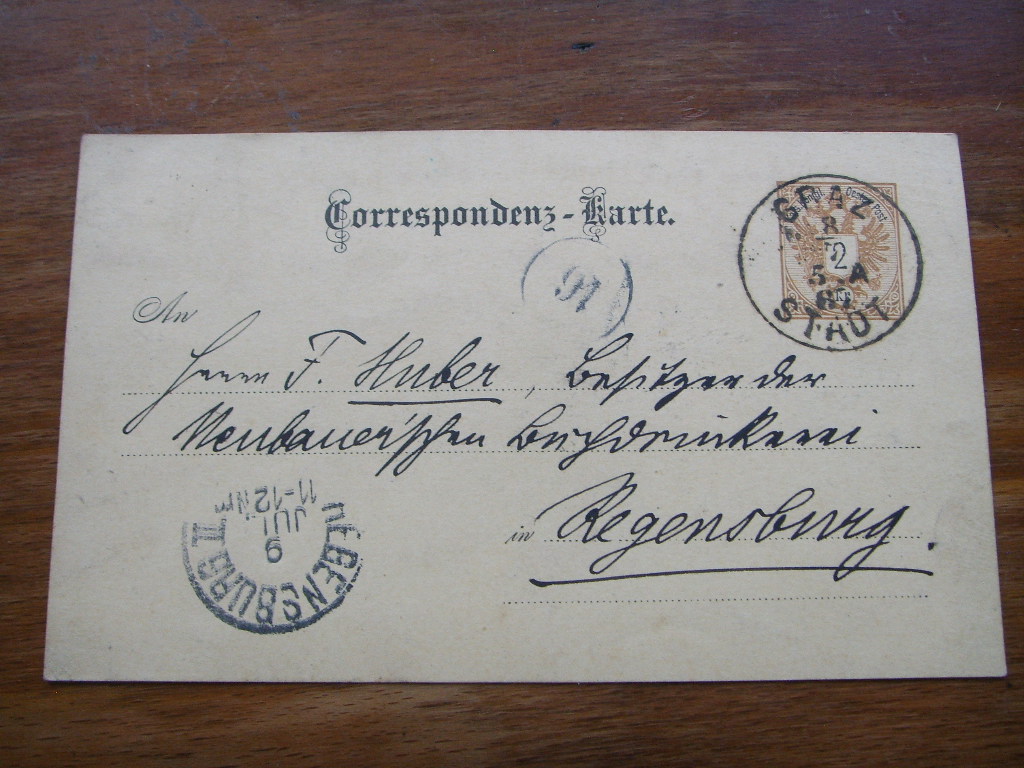 Correspondenz-Karte.
GRAZ
8
5 A
STADT
2
91
An
Herrn F. Huber, Besitzer der
Neubauer'schen Buchdruckerei
in Regensburg.
REGENSBURG II
9
11-12 Nm